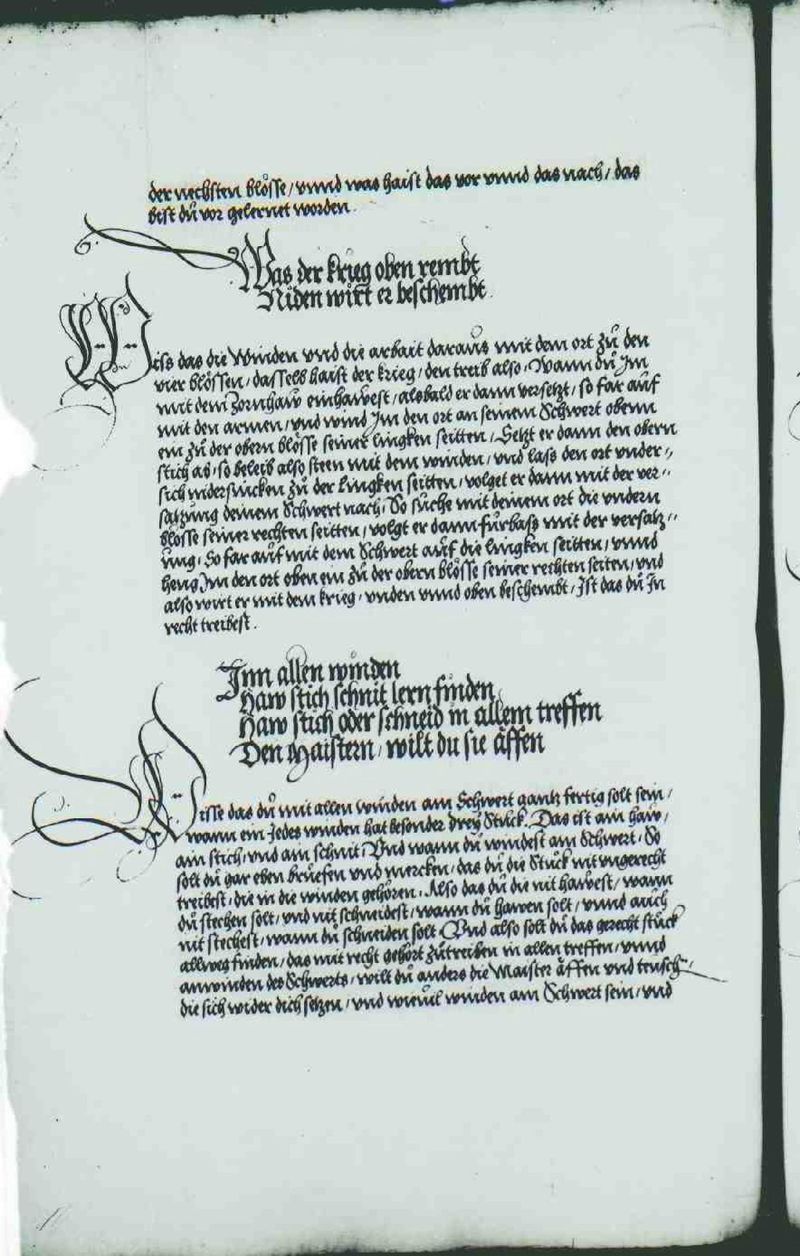 der nechsten blösse / vnnd was haist das vor vnnd das nach / das
bist dŭ vor gelernet worden.
Was der krieg oben rembt
Niden wirt er beschembt.
Wiss das die Winden vnd die arbait daraŭs mit dem ort zŭ den
vier blössen / dasselb haist der krieg / den treib also / Wann dŭ Im
mit dem Zornhaw einhawest / alsbald er dann versetzt / so far aŭf
mit den armen / vnd wind Im den ort an seinem Schwert obenn
ein zŭ der obern blösse seiner lingken seitten / Setzt er dann den obern
stich ab / so beleib also steen mit dem winden / vnd lass den ort vnder-
sich nidersincken zŭ der lingken seitten / volget er dann mit der ver-
satzŭng deinem Schwert nach / So sŭche mit deinem ort die vndern
blösse seiner rechten seitten / volgt er dann fŭrbass mit der versatz-
ŭng / So far aŭf mit dem Schwert aŭf die lingken seitten / vnnd
heng Im den ort oben ein zŭ der obern blösse seiner rechten seiten / vnd
also wirt er mit dem krieg / vnden vnnd oben beschembt / Ist das dŭ In
recht treibest.
Inn allen winden
Haw stich schnit lern finden
Haw stich oder schneid in allem treffen
Den Maistern / wilt du sie äffen
Wisse das dŭ mit allen winden am Schwert gantz fertig solt sein /
wann ein Jedes winden hat besonder dreÿ Stŭck / Das ist am haw /
am stich / vnd am schnit / Vnd wann dŭ windest am Schwert / So
solt dŭ gar eben brŭefen vnd mercken / das dŭ die Stŭck nit vngerecht
treibest / die in die winden gehören / Also das dŭ die nit hawest / wann
dŭ stechen solt / vnd nit schneidest / wann dŭ hawen solt / vnnd aŭch
nit stechest / wann dŭ schneiden solt / Vnd also solt dŭ das gerecht stŭck
allweg finden / das mit recht gehört zŭtreiben in allen treffen / vnnd
anwinden des Schwerts / wilt dŭ anders die Maister äffen vnd teŭsch-
die sich wider dich setzen / vnd wieuil winden am Schwert sein / vnd